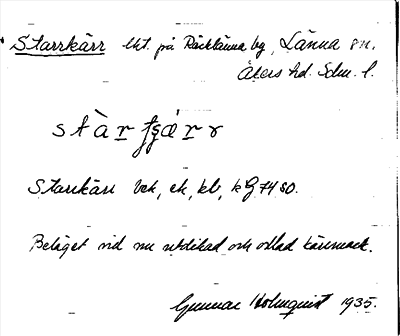 Starrkärr lht. på Räcklänna by, Länna sn.
Åkers hd. Sdm. l.
stàr̲ tʂær̲r
Starrkärr bek, ek, kb, kG 7480.
Beläget vid nu utdikad och odlad kärrmark.
Gunnar Holmquist 1935.